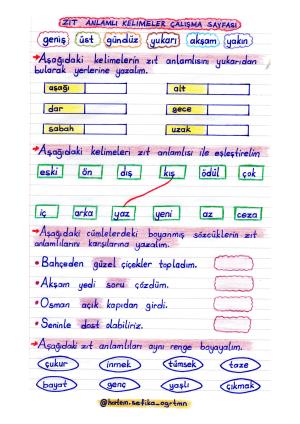 ZIT ANLAMLI KELİMELER ÇALIŞMA SAYFASI
geniş üst gündüz yukarı akşam yakın
Aşağıdaki kelimelerin zıt anlamlısını yukarıdan
bularak yerlerine yazalım.
aşağı alt
dar gece
sabah uzak
Aşağıdaki kelimeleri zıt anlamlısı ile eşleştirelim
eski ön dış kış ödül çok
iç arka yaz yeni az ceza
Aşağıdaki cümlelerdeki boyanmış sözcüklerin zıt
anlamlılarını karşılarına yazalım.
Bahçeden güzel çiçekler topladım.
Akşam yedi soru çözdüm.
Osman açık kapıdan girdi.
Seninle dost olabiliriz.
Aşağıdaki zıt anlamlıları aynı renge boyayalım.
çukur inmek tümsek taze
bayat genç yaşlı çıkmak
@hatem.sefika_ogrtmn